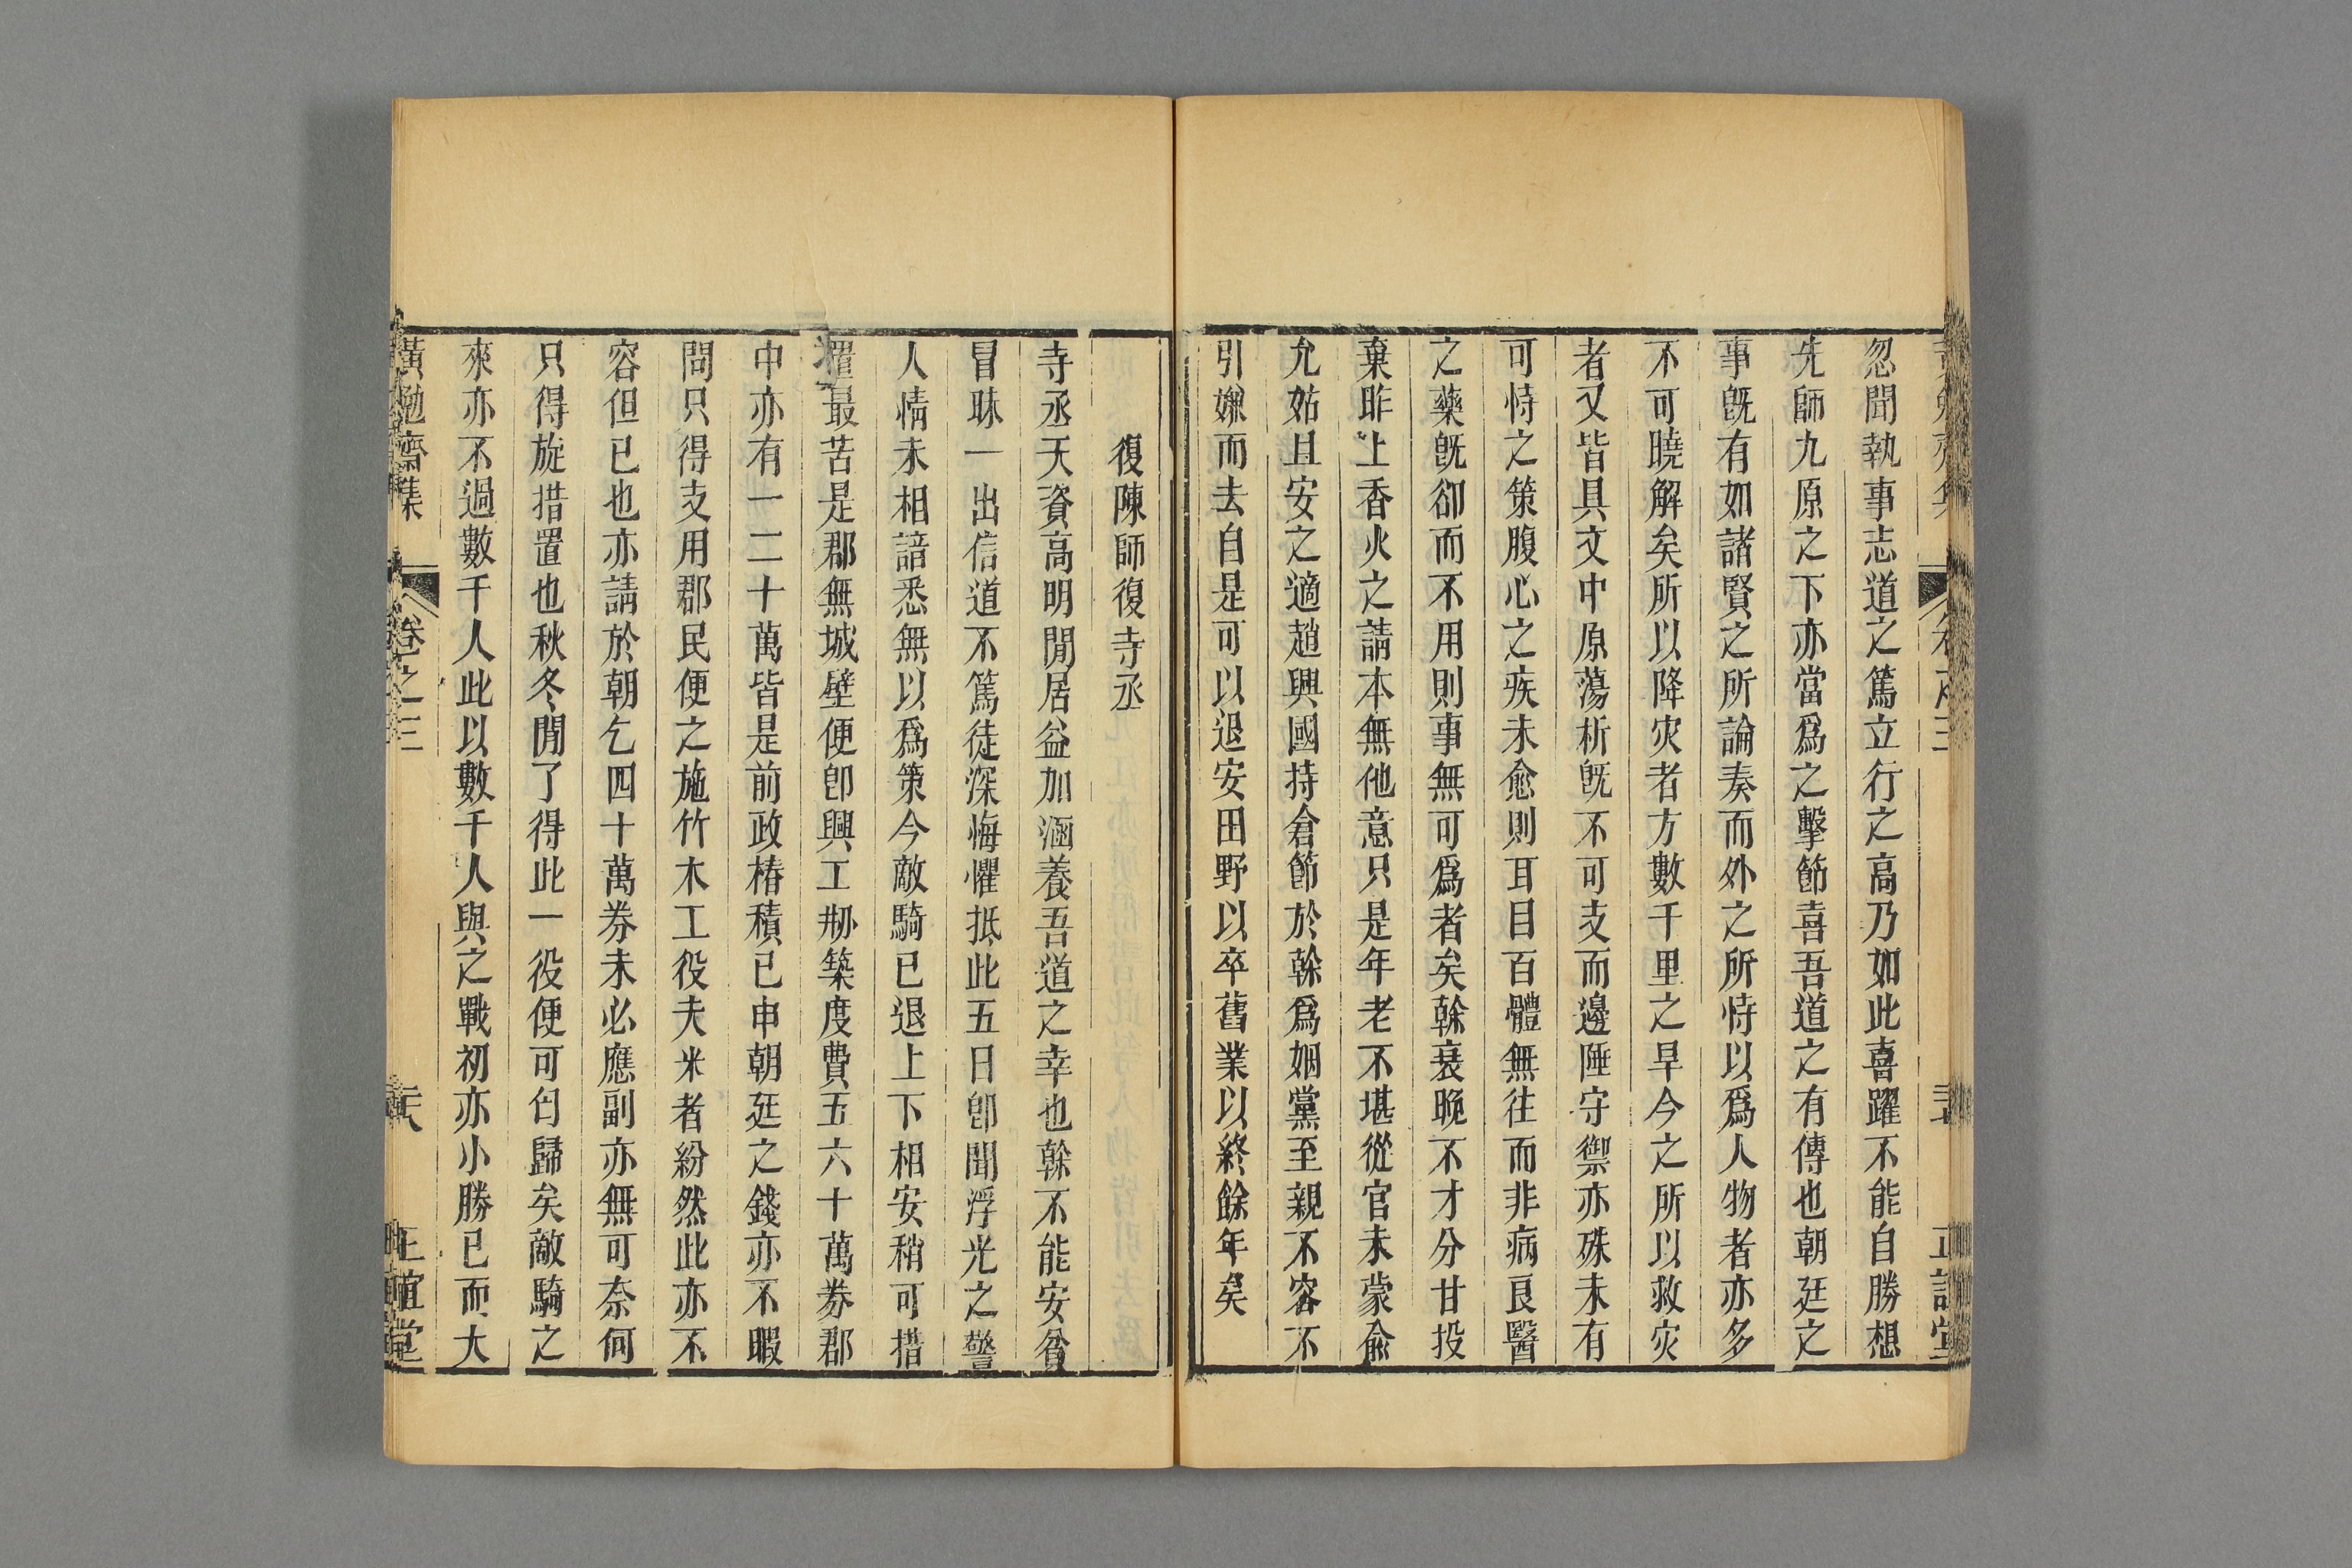 忽聞執事志道之篤立行之高乃如此喜躍不能自勝想
先師九原之下亦當爲之擊節喜吾道之有傳也朝廷之
事旣有如諸賢之所論奏而外之所恃以爲人物者亦多
不可曉解矣所以降灾者方數千里之旱今之所以救灾
者又皆具文中原蕩析旣不可支而邊陲守禦亦殊未有
可恃之策腹心之疾未愈則耳目百體無往而非病良醫
之藥旣卻而不用則事無可爲者矣榦衰晚不才分甘投
棄昨上香火之請本無他意只是年老不堪從官未蒙俞
允姑且安之適趙興國持倉節於榦爲姻黨至親不容不
引嫌而去自是可以退安田野以卒舊業以終餘年矣
復陳師復寺丞
寺丞天資高明閒居益加涵養吾道之幸也榦不能安貧
冒昧一出信道不篤徒深悔懼抵此五日卽聞浮光之警
人情未相諳悉無以爲策今敵騎已退上下相安稍可措
置最苦是郡無城壁便卽興工剏築度費五六十萬券郡
中亦有一二十萬皆是前政樁積已申朝廷之錢亦不暇
問只得支用郡民便之施竹木工役夫米者紛然此亦不
容但已也亦請於朝乞四十萬券未必應副亦無可奈何
只得旋措置也秋冬閒了得此一役便可匄歸矣敵騎之
來亦不過數千人此以數千人與之戰初亦小勝已而大
黃勉齋集
卷之三
天
正誼堂